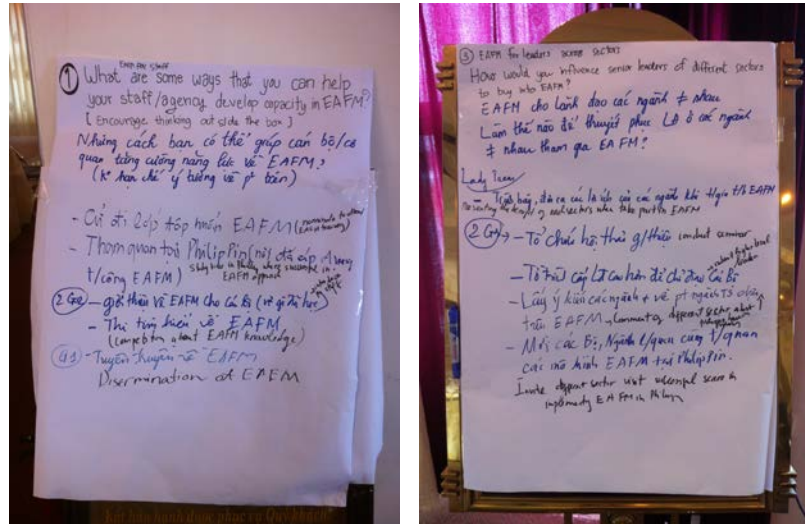 EAFM FOR STAFF
① What are some ways that you can help
your staff/agency develop capacity in EAFM?
[Encourage thinking outside the box]
Những cách bạn có thể giúp cán bộ/cơ
quan tăng cường năng lực về EAFM?
(k° hạn chế ý tưởng về
- Cử đi lớp tập huấn EAFM
- Tham quan tại PhilipPin (nơi đã áp
t/công EAFM)
EAFM approach
2 Gr - giới thiệu về EAFM cho Cán Bộ
- Thi tìm hiểu về EAFM
(competition about EAFM knowledge)
- Tuyên truyền về EAFM
Disermination of EAFM
③ EAFM for leaders across sectors
How would you influence senior leaders of different sectors
to buy into EAFM?
EAFM cho lãnh đạo các ngành ≠ nhau
Làm thế nào để thuyết phục LĐ ở các ngành
≠ nhau tham gia EAFM?
Lady Team
- Trình bày, đưa ra các lợi ích của các ngành khi t/gia t/h EAFM
Presenting the of each sectors when take part in EAFM
2 Gr - Tổ chức hội thảo g/thiệu conduct seminar
- Tờ trình cấp LĐ cao hơn để chỉ đạo Cán Bộ
- Lấy ý kiến các ngành ≠ về pt ngành TS
trên EAFM, comment of different sector about
- Mời các Bộ, Ngành l/quan cùng t/quan
các mô hình EAFM tại PhilipPin.
Invite different sector visit successful
implementing EAFM in